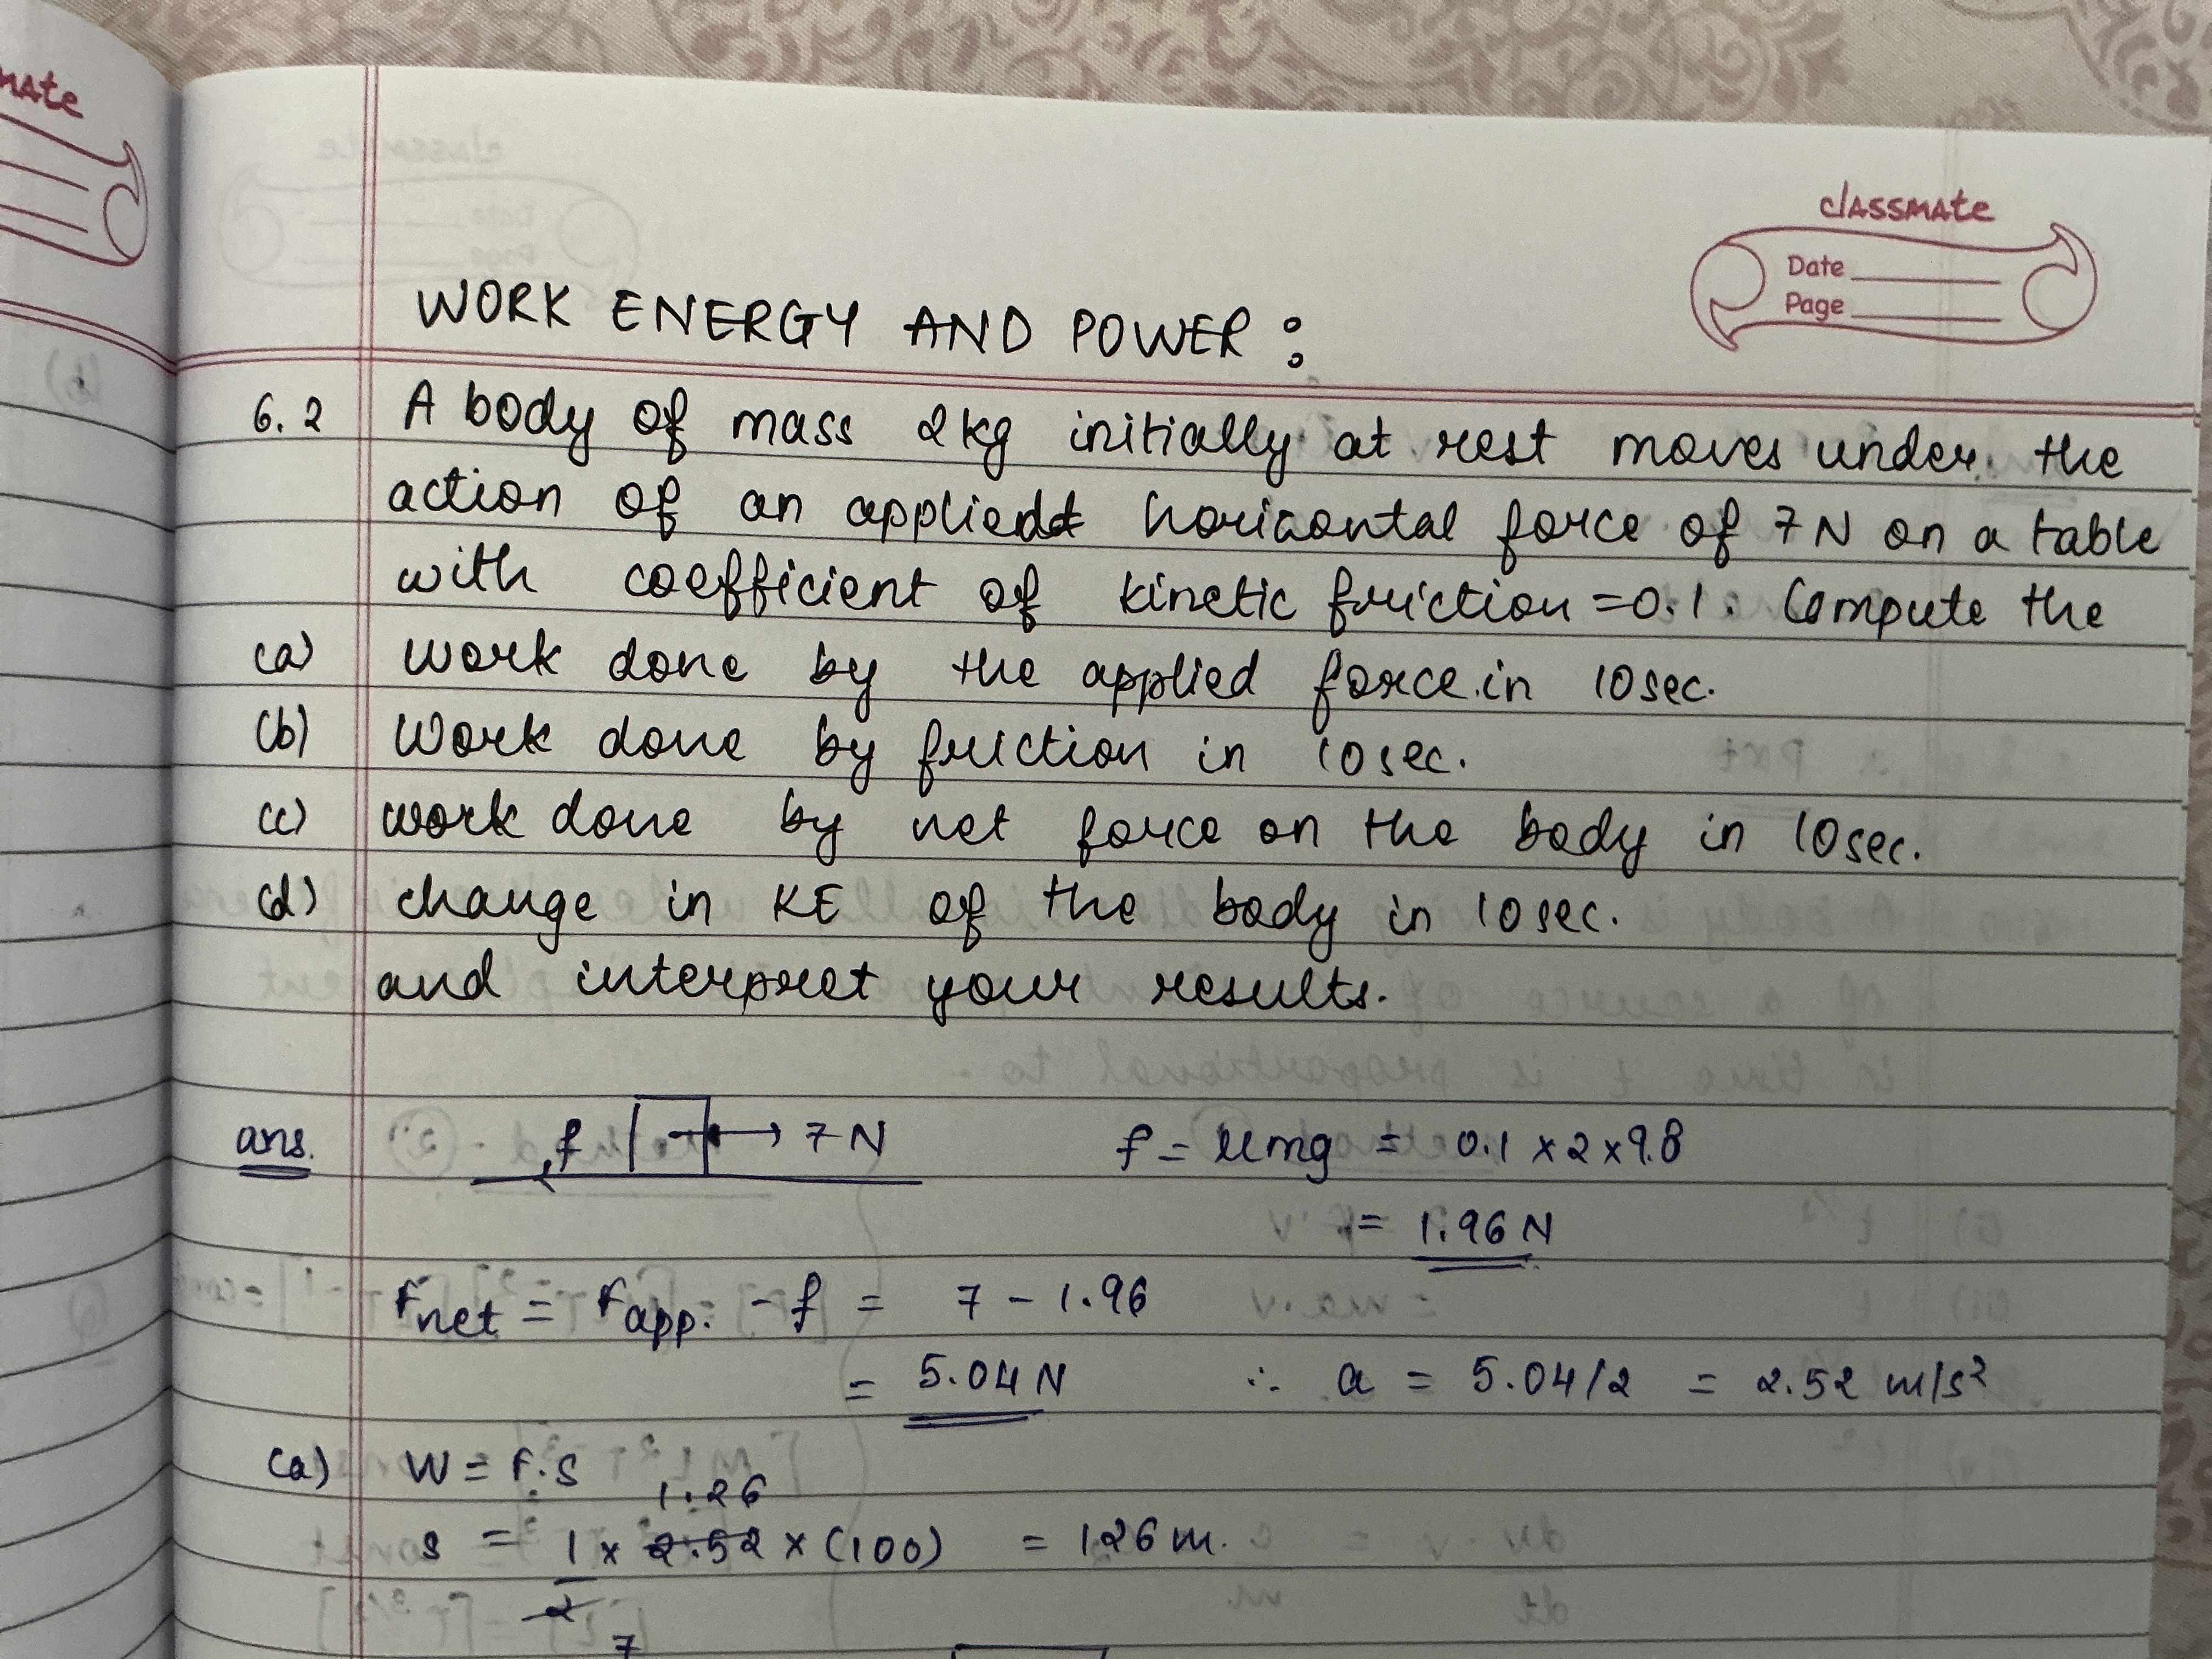 mate
classmate
Date
Page
WORK ENERGY AND POWER :
6.2 A body of mass 2kg initially at rest moves under the
action of an applied horizontal force of 7N on a table
with coefficient of kinetic friction = 0.1. Compute the
(a) work done by the applied force in 10sec.
(b) Work done by friction in 10sec.
(c) work done by net force on the body in 10sec.
(d) change in KE of the body in 10sec.
and interpret your results.
ans. f 7N f = μmg = 0.1 × 2 × 9.8
= 1.96 N
Fnet = Fapp. - f = 7 - 1.96
= 5.04 N ∴ a = 5.04/2 = 2.52 m/s²
(a) W = F.S
1.26
s = 1 × 2.52 × (100) = 126 m.
2
7